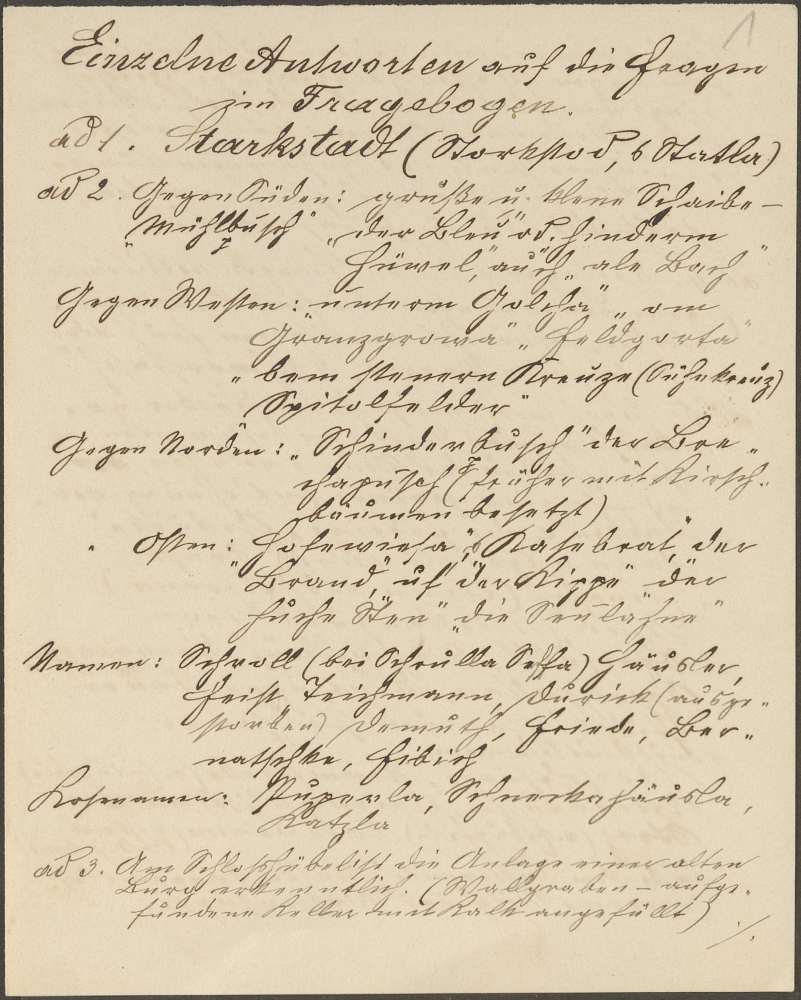 1
Einzelne Antworten auf die Fragen
im Fragebogen.
ad 1. Starkstadt (Storkstod, s Statla)
ad 2. Gegen Süden: gruße u. klene Scheibe –
"Mühlbusch" "der Bleu" od. hinderm
Hüwel, auch "ale Bach"
Gegen Westen: "unterm Golcha" "om
Gränzgrowa" "Feldgorta"
"bem stenern Kreuze (Sühnkreuz)
Spitolfelder"
Gegen Norden: "Schinderbusch" der
(früher mit Kirsch-
bäumen besetzt)
" Osten: Hofewiesa", "s Kasebrat", der
Brand", "uf der Kippe" der
huche Sten" "die Seulähne"
Namen: Schroll (bei Schrulla Seffa) Häusler,
Feist, Teichmann, Durick (ausge-
storben) Demuth, Friede, Ber-
natschke, Fibich
Kosenamen: Puperla, Schneckahäusla,
Katzla
ad 3. Am Schloßhübel ist die Anlage einer alten
Burg erkenntlich. (Wallgraben – aufge-
fundene Keller mit Kalk angefüllt)
./.